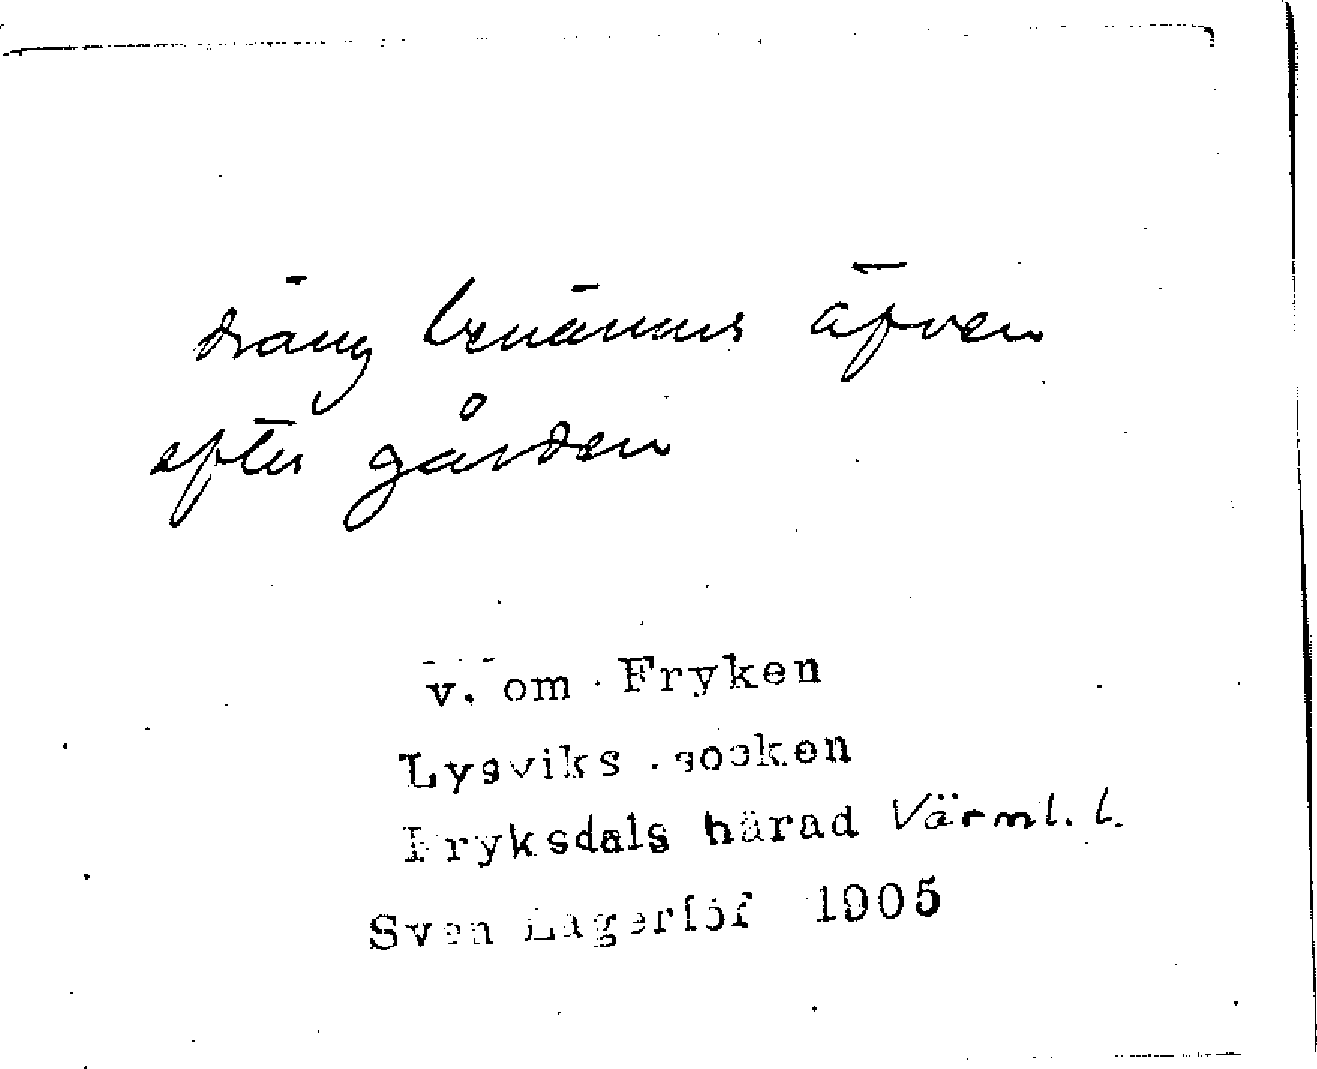 dräng benämnes äfven
efter gården
v. om Fryken
Lysviks socken
Fryksdals härad Värml. l.
Sven Lagerlöf 1905